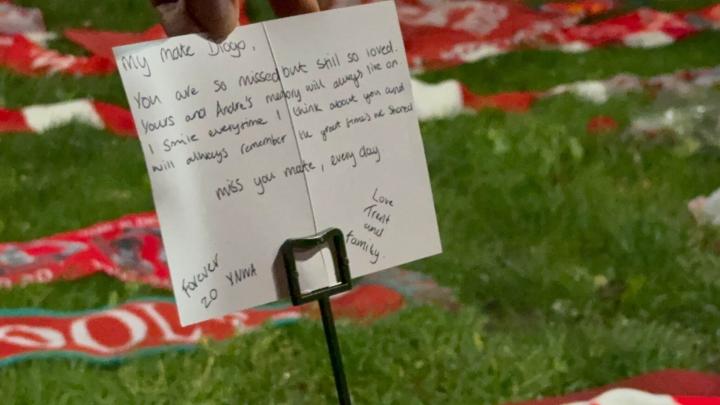 My mate Diogo,
You are so missed but still so loved.
Yours and Andre's memory will always live on.
I smile everytime I think about you and
will always remember the great times we shared
miss you mate, every day
Love
Trent
and
family.
Forever
20 YNWA
POOL